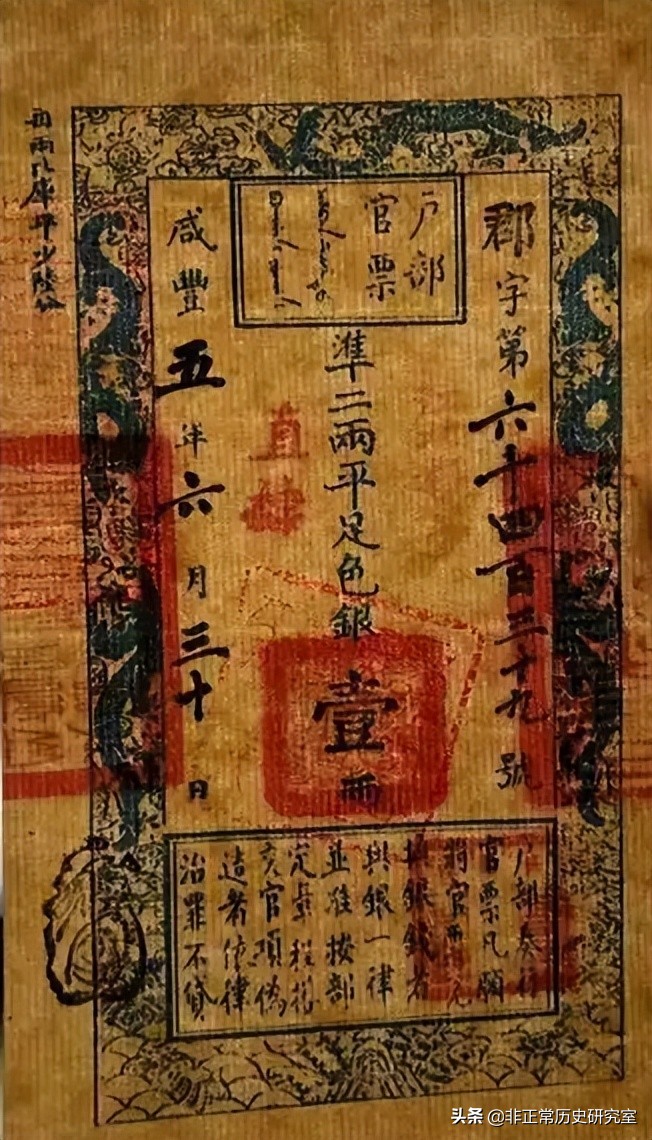 郡字第六千四百三十九號
户部
官票
準二兩平足色銀壹兩
直隸
咸豐五年六月三十日
每兩比庫平少陸分
户部奏行
官票凡願
將官票兌
換銀錢者
與銀一律
並准按部
定章程搭
交官項偽
造者依律
治罪不貸
头条 @非正常历史研究室